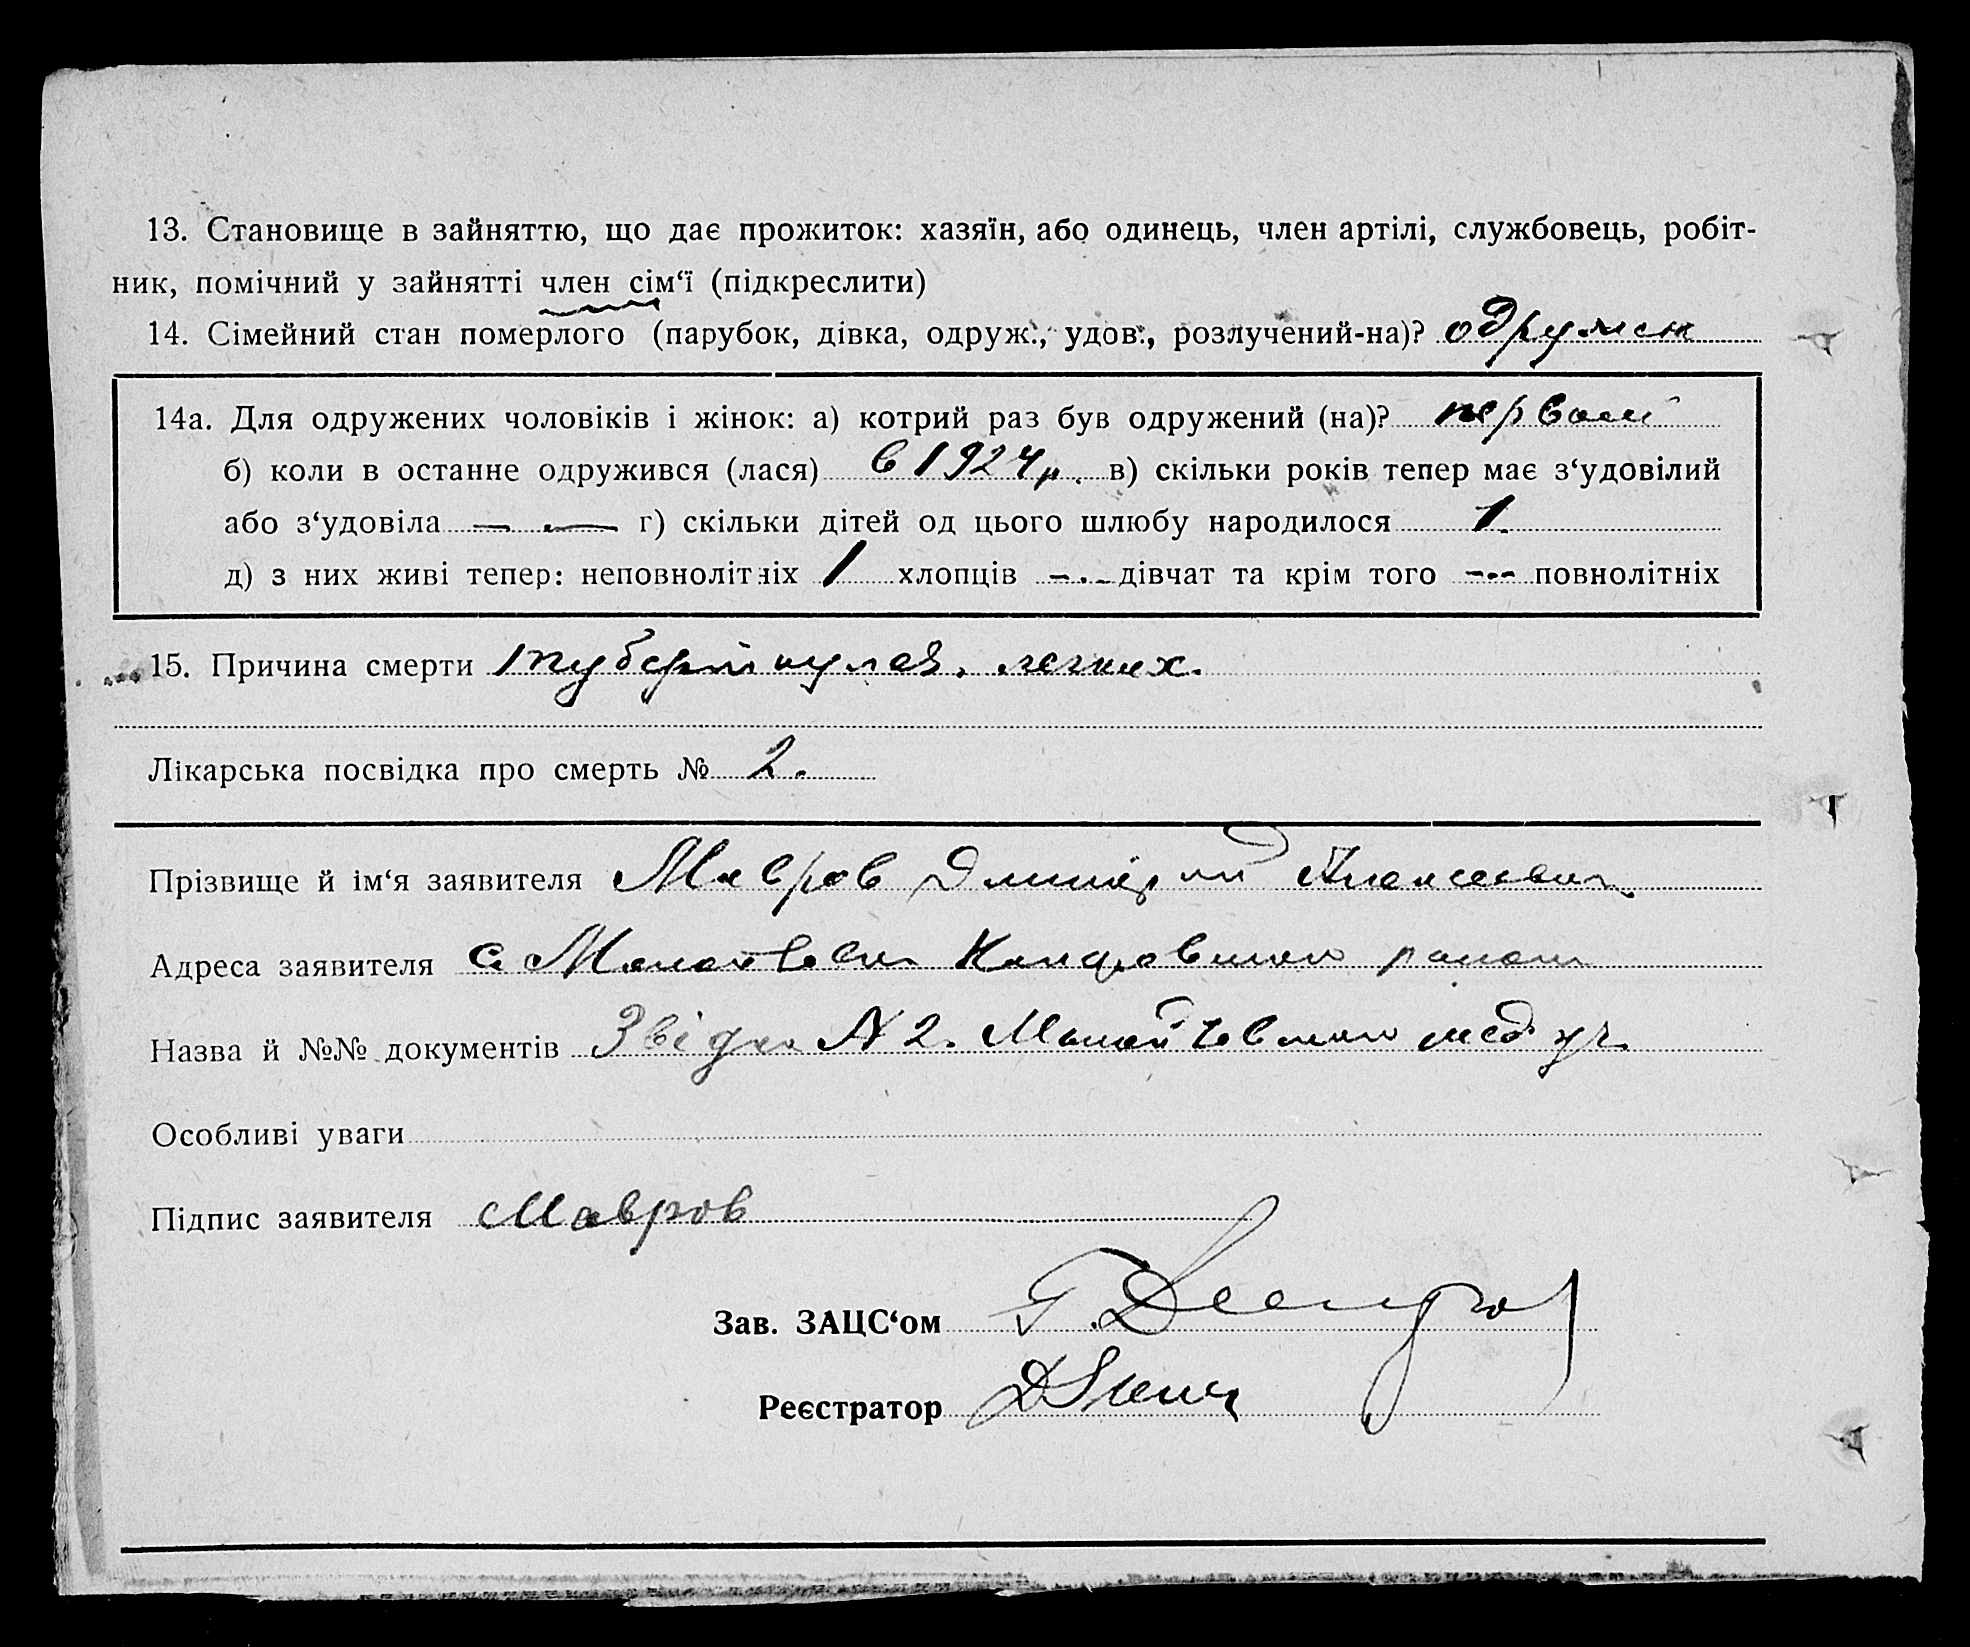 13. Становище в зайняттю, що дає прожиток: хазяїн, або одинець, член артілі, службовець, робіт-
ник, помічний у зайнятті член сім‘ї (підкреслити)
14. Сімейний стан померлого (парубок, дівка, одруж., удов., розлучений-на)? одружен
14а. Для одружених чоловіків і жінок: а) котрий раз був одружений (на)? первый
б) коли в останнє одружився (лася) в 1924 р. в) скільки років тепер має з‘удовілий
або з‘удовіла — — г) скільки дітей од цього шлюбу народилося 1.
д) з них живі тепер: неповнолітніх 1 хлопців — дівчат та крім того — повнолітніх
15. Причина смерти туберкулез. легких.
Лікарська посвідка про смерть № 2.
Прізвище й ім‘я заявителя Мавров Дмитрий Алексеевич
Адреса заявителя с. района
Назва й №№ документів Звідка № 2. мед уч.
Особливі уваги
Підпис заявителя Мавров
Зав. ЗАЦС‘ом
Реєстратор